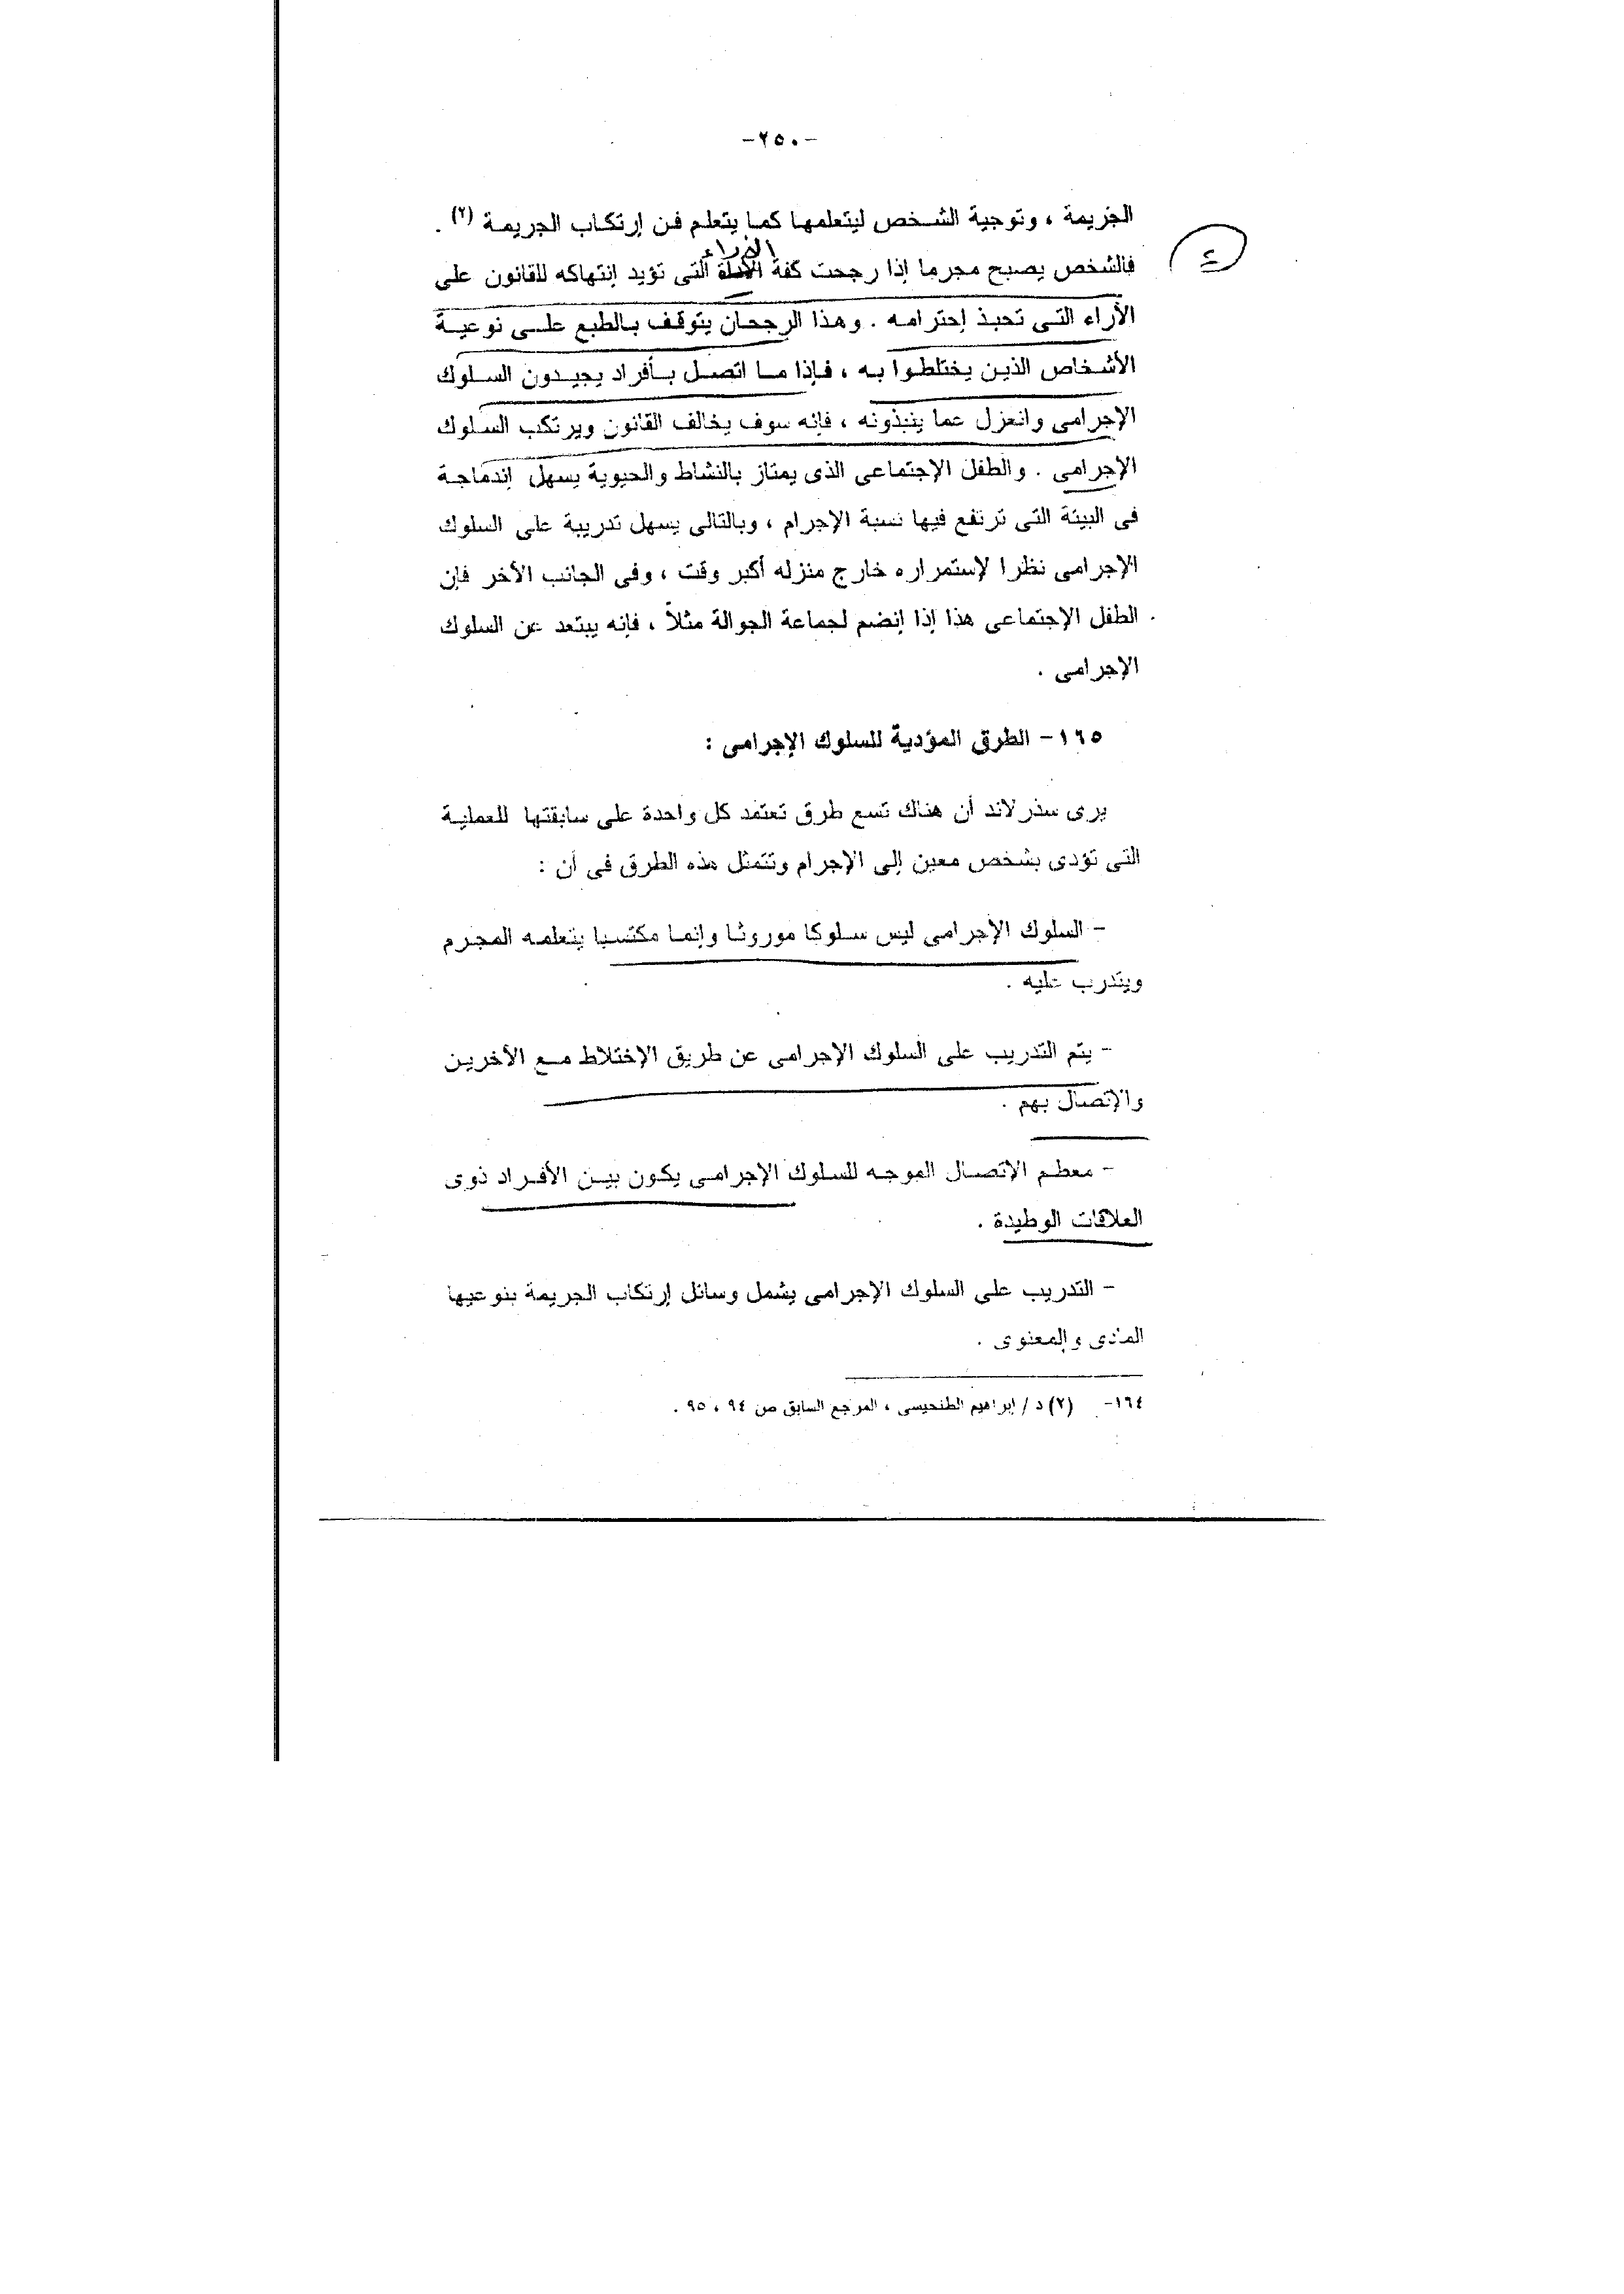 -٢٥٠-
الجريمة ، وتوجية الشخص ليتعلمها كما يتعلم فن إرتكاب الجريمة (٢) .
الأراء
٤
فالشخص يصبح مجرما إذا رجحت كفة الأدلة التى تؤيد إنتهاكه للقانون على
الأراء التى تحبذ إحترامه . وهذا الرجحان يتوقف بالطبع على نوعية
الأشخاص الذين يختلطوا به ، فإذا ما اتصل بأفراد يجيدون السلوك
الإجرامى وانعزل عما ينبذونه ، فإنه سوف يخالف القانون ويرتكب السلوك
الإجرامى . والطفل الإجتماعى الذى يمتاز بالنشاط والحيوية يسهل إندماجة
فى البيئة التى ترتفع فيها نسبة الإجرام ، وبالتالى يسهل تدريبة على السلوك
الإجرامى نظرا لإستمراره خارج منزله أكبر وقت ، وفى الجانب الأخر فإن
الطفل الإجتماعى هذا إذا إنضم لجماعة الجوالة مثلاً ، فإنه يبتعد عن السلوك
الإجرامى .
١٦٥- الطرق المؤدية للسلوك الإجرامى :
يرى سذرلاند أن هناك تسع طرق تعتمد كل واحدة على سابقتها للعملية
التى تؤدى بشخص معين إلى الإجرام وتتمثل هذه الطرق فى أن :
- السلوك الإجرامى ليس سلوكا موروثا وإنما مكتسبا يتعلمه المجرم
ويتدرب عليه .
- يتم التدريب على السلوك الإجرامى عن طريق الإختلاط مع الأخرين
والإتصال بهم .
- معظم الإتصال الموجه للسلوك الإجرامى يكون بين الأفراد ذوى
العلاقات الوطيدة .
- التدريب على السلوك الإجرامى يشمل وسائل إرتكاب الجريمة بنوعيها
المادى والمعنوى .
١٦٤- (٢) د / إبراهيم الطنحيسى ، المرجع السابق ص ٩٤ ، ٩٥ .